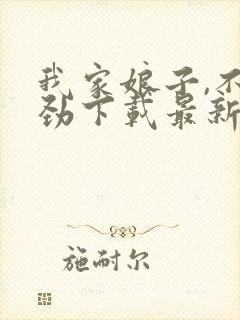 我家娘子,不
劲下载最新
施耐尔